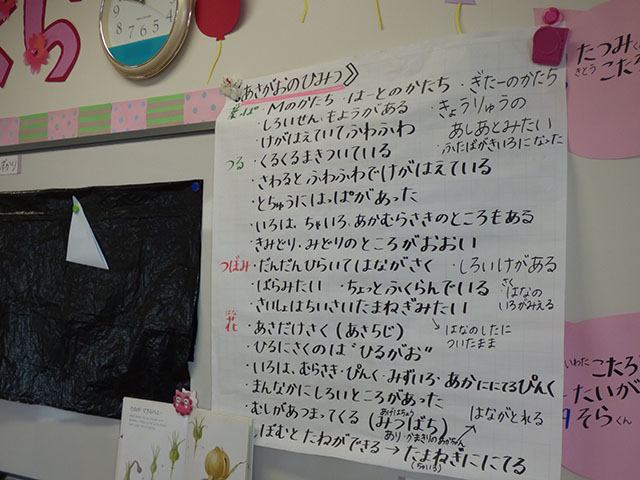 あさがおのひみつ》
葉っぱ・Mのかたち・はーとのかたち ・ぎたーのかたち
・しろいせん・もようがある ・きょうりゅうの
あしあとみたい
・けがはえていてふわふわ
・ふたばがきいろになった
つる・くるくるまきついている
・さわるとふわふわでけがはえている
・とちゅうにはっぱがあった
・いろは、ちゃいろ、あかむらさきのところもある
・きみどり・みどりのところがおおい
つぼみ・だんだんひらいてはながさく ・しろいけがある
・ばらみたい ・ちょっとふくらんでいる
さくはなのいろがみえる
・さいしょはちいさいたまねぎみたい
→はなのしたについたまま
花 はな
・あさだけさく(あさらじ)
・ひるにさくのは"ひるがお"
・いろは、むらさき・ぴんく・みずいろ・あかににてるぴんく
・まんなかにしろいところがあった
・むしがあつまってくる(みつばち)
あげはちょう
あり・かまきりのあかちゃん
→はながとれる
しぼむとたねができる→たまねぎににてる
(ちゃいろ)
たつみくん
さとう こたろ
いわた こたろ
たいが
そらくん